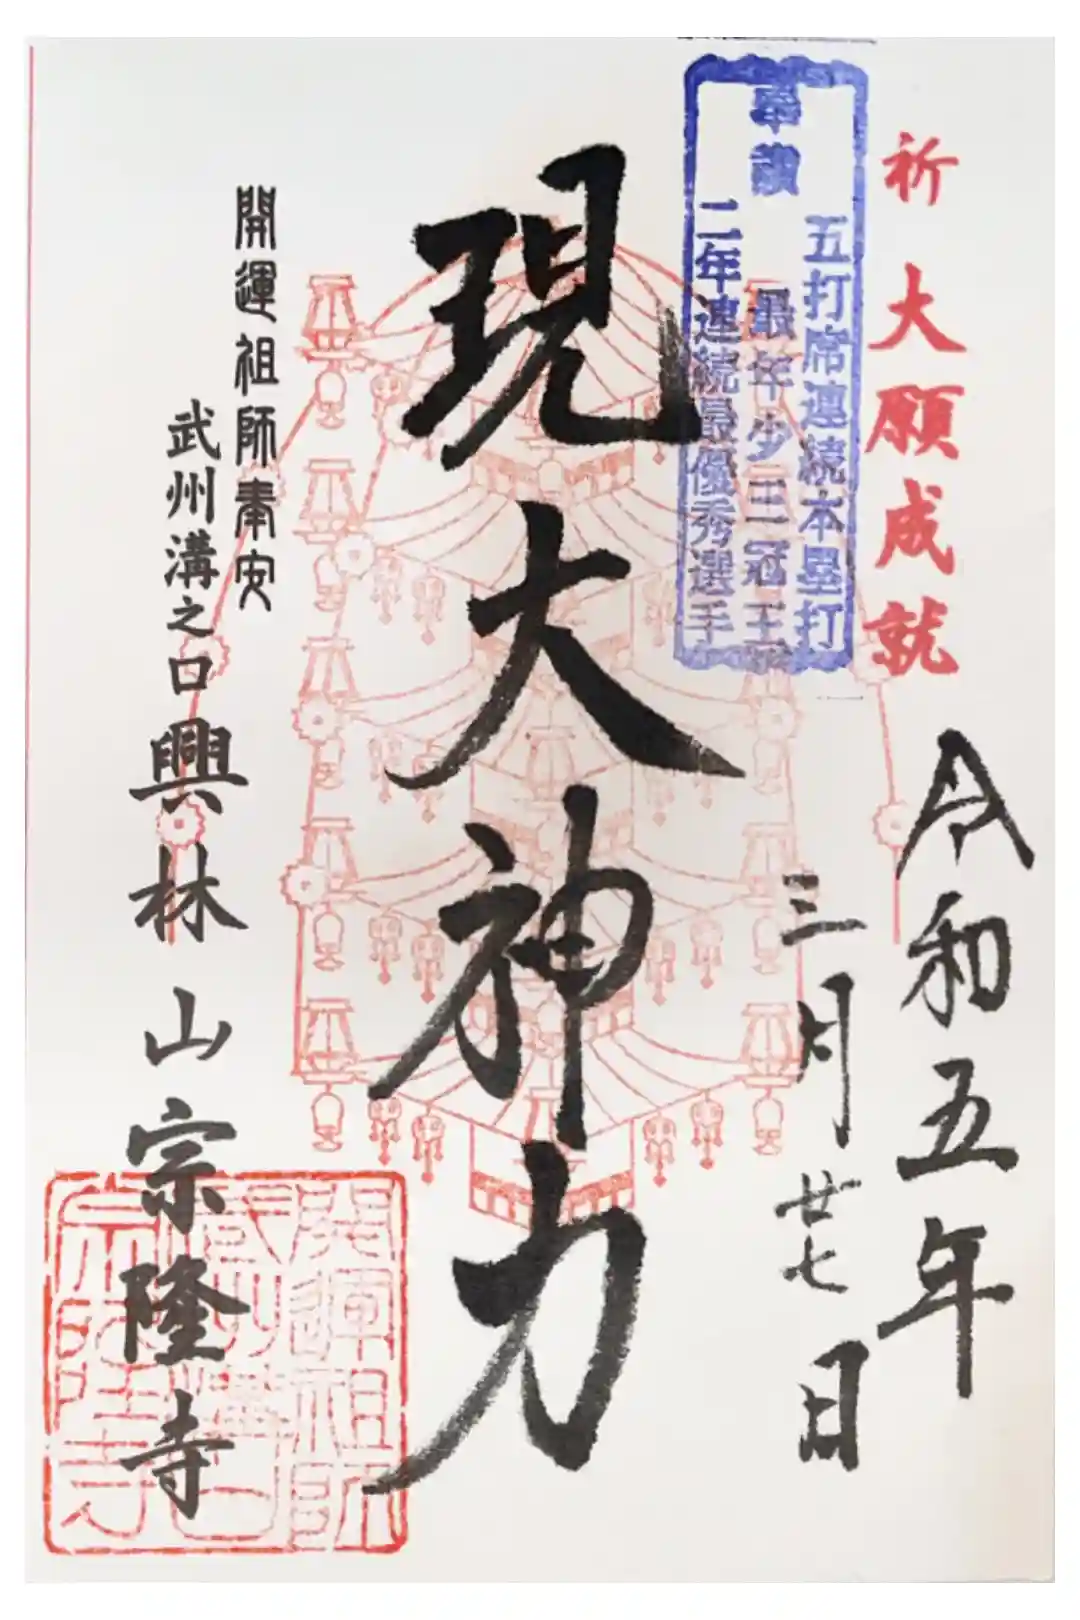 祈 大願成就
令和五年
三月廿七日
奉讃
五打席連続本塁打
最年少三冠王
二年連続最優秀選手
現大神力
開運祖師奉安
武州溝之口 興林山宗隆寺
開運祖師
武州溝口
宗隆寺